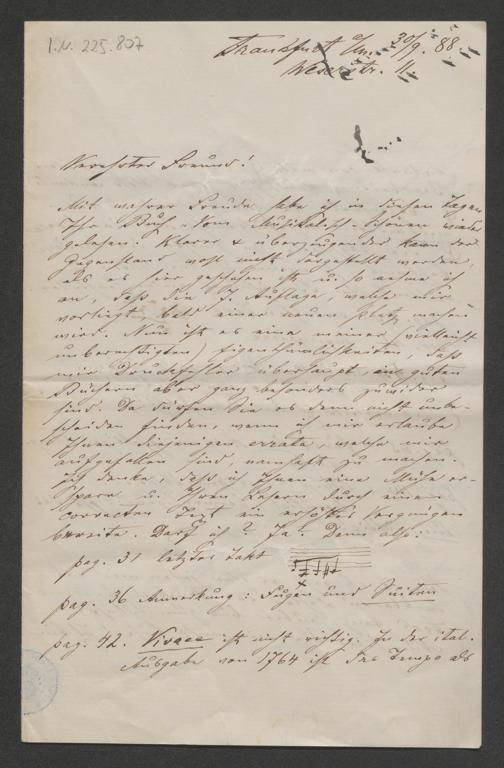 I.N. 225.807
Frankfurt a/M. 30/9. 88.
Weserstr. 11.
Verehrter Freund!
Mit wahrer Freude habe ich in diesen Tagen
Ihr Buch „Vom Musikalisch-Schönen wieder
gelesen. Klarer & überzeugender kann der
Gegenstand wohl nicht dargestellt werden,
als es hier geschehen ist u. so nehme ich
an, daß die 7. Auflage, welche mir
vorliegt, bald einer neuen Platz machen
wird. Nun ist es eine meiner (vielleicht
unberechtigten) Eigenthümlichkeiten, daß
mir Druckfehler überhaupt, in guten
Büchern aber ganz besonders zuwider
sind. Da dürfen Sie es denn nicht unbe-
scheiden finden, wenn ich mir erlaube
Ihnen diejenigen errata, welche mir
aufgefallen sind, namhaft zu machen.
Ich denke, daß ich Ihnen eine Mühe er-
spare u. Ihren Lesern durch einen
correcten Text ein erhöhtes Vergnügen
bereite. Darf ich? Ja! Denn also:
pag. 31 letzter Takt
pag. 36 Anmerkung: Fugen und Suiten
pag. 42. Vivace ist nicht richtig. In der ital.
Ausgabe von 1764 ist das Tempo als